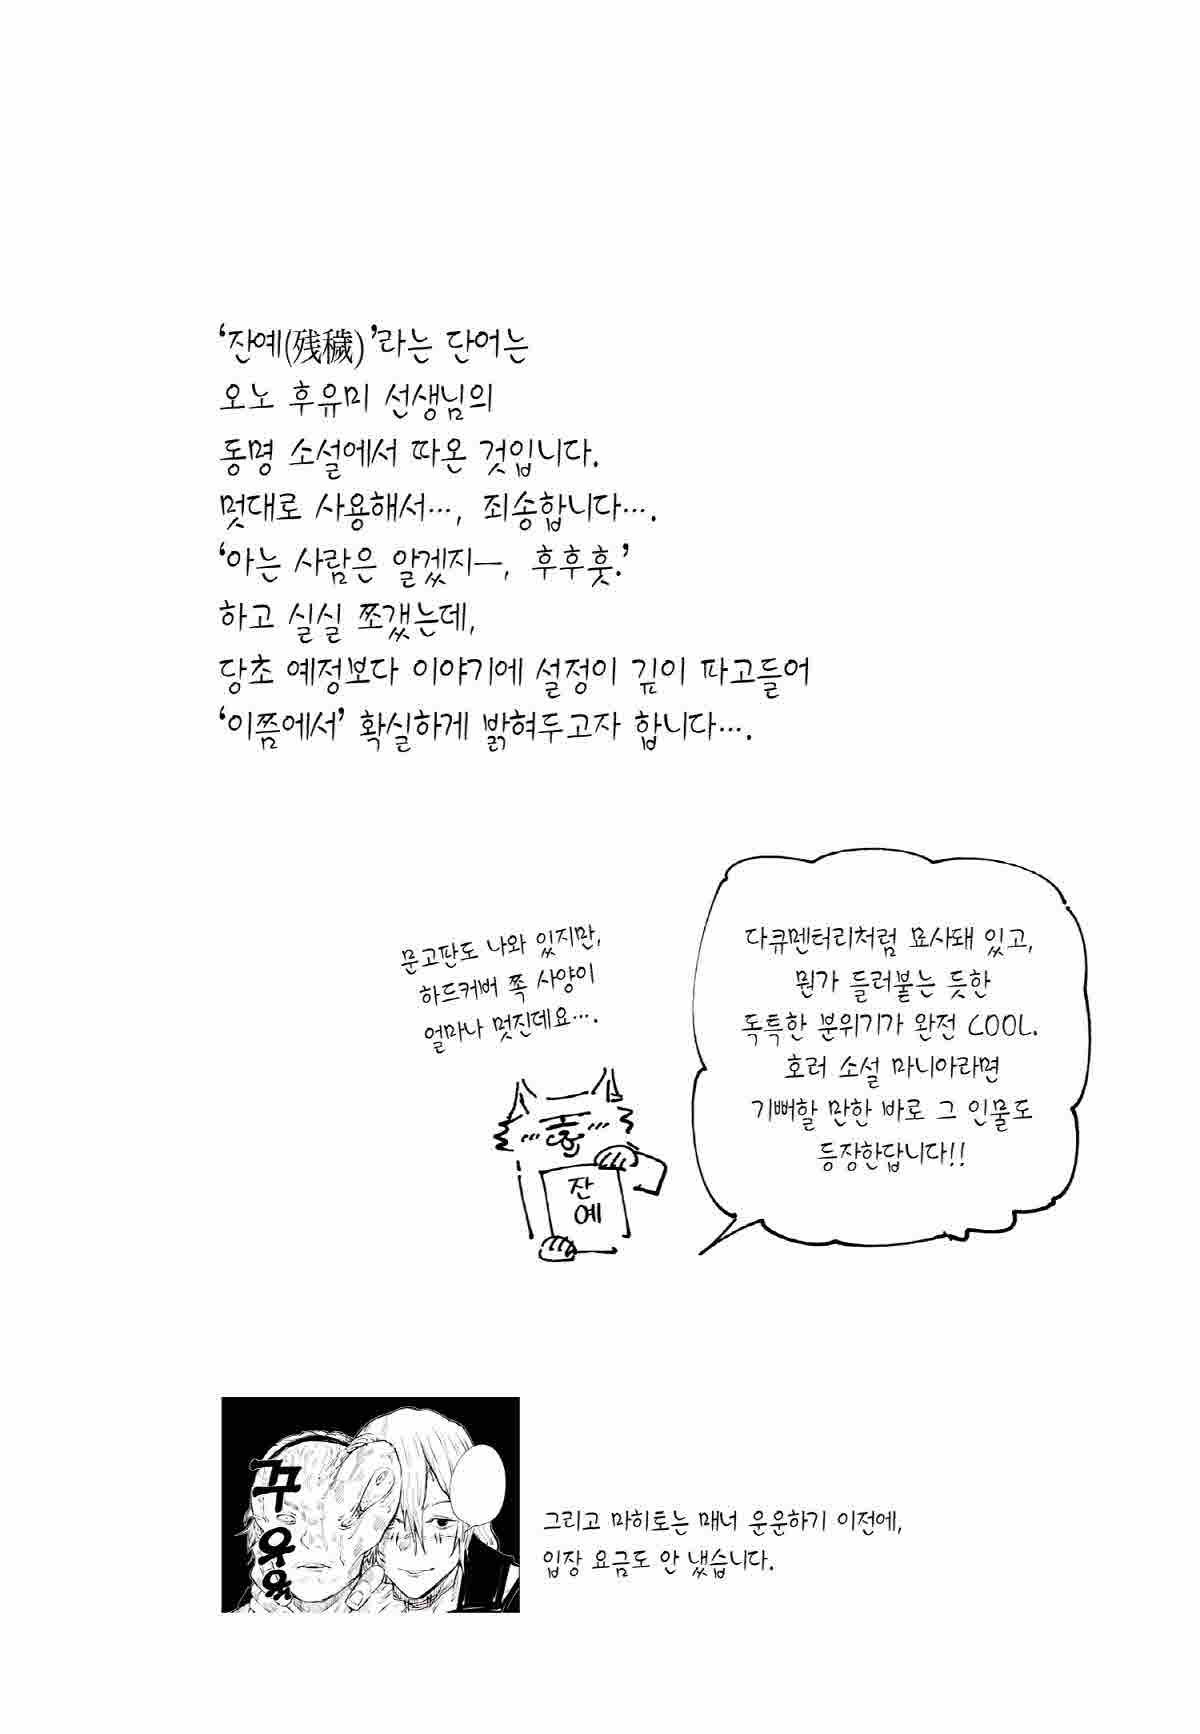 ‘잔예(残穢)’라는 단어는
오노 후유미 선생님의
동명 소설에서 따온 것입니다.
멋대로 사용해서…, 죄송합니다….
‘아는 사람은 알겠지—, 후후훗.’
하고 실실 쪼갰는데,
당초 예정보다 이야기에 설정이 깊이 파고들어
‘이쯤에서’ 확실하게 밝혀두고자 합니다….
문고판도 나와 있지만,
하드커버 쪽 사양이
얼마나 멋진데요….
다큐멘터리처럼 묘사돼 있고,
뭔가 들러붙는 듯한
독특한 분위기가 완전 COOL.
호러 소설 마니아라면
기뻐할 만한 바로 그 인물도
등장한답니다!!
잔
예
꾸
우
욱
그리고 마히토는 매너 운운하기 이전에,
입장 요금도 안 냈습니다.